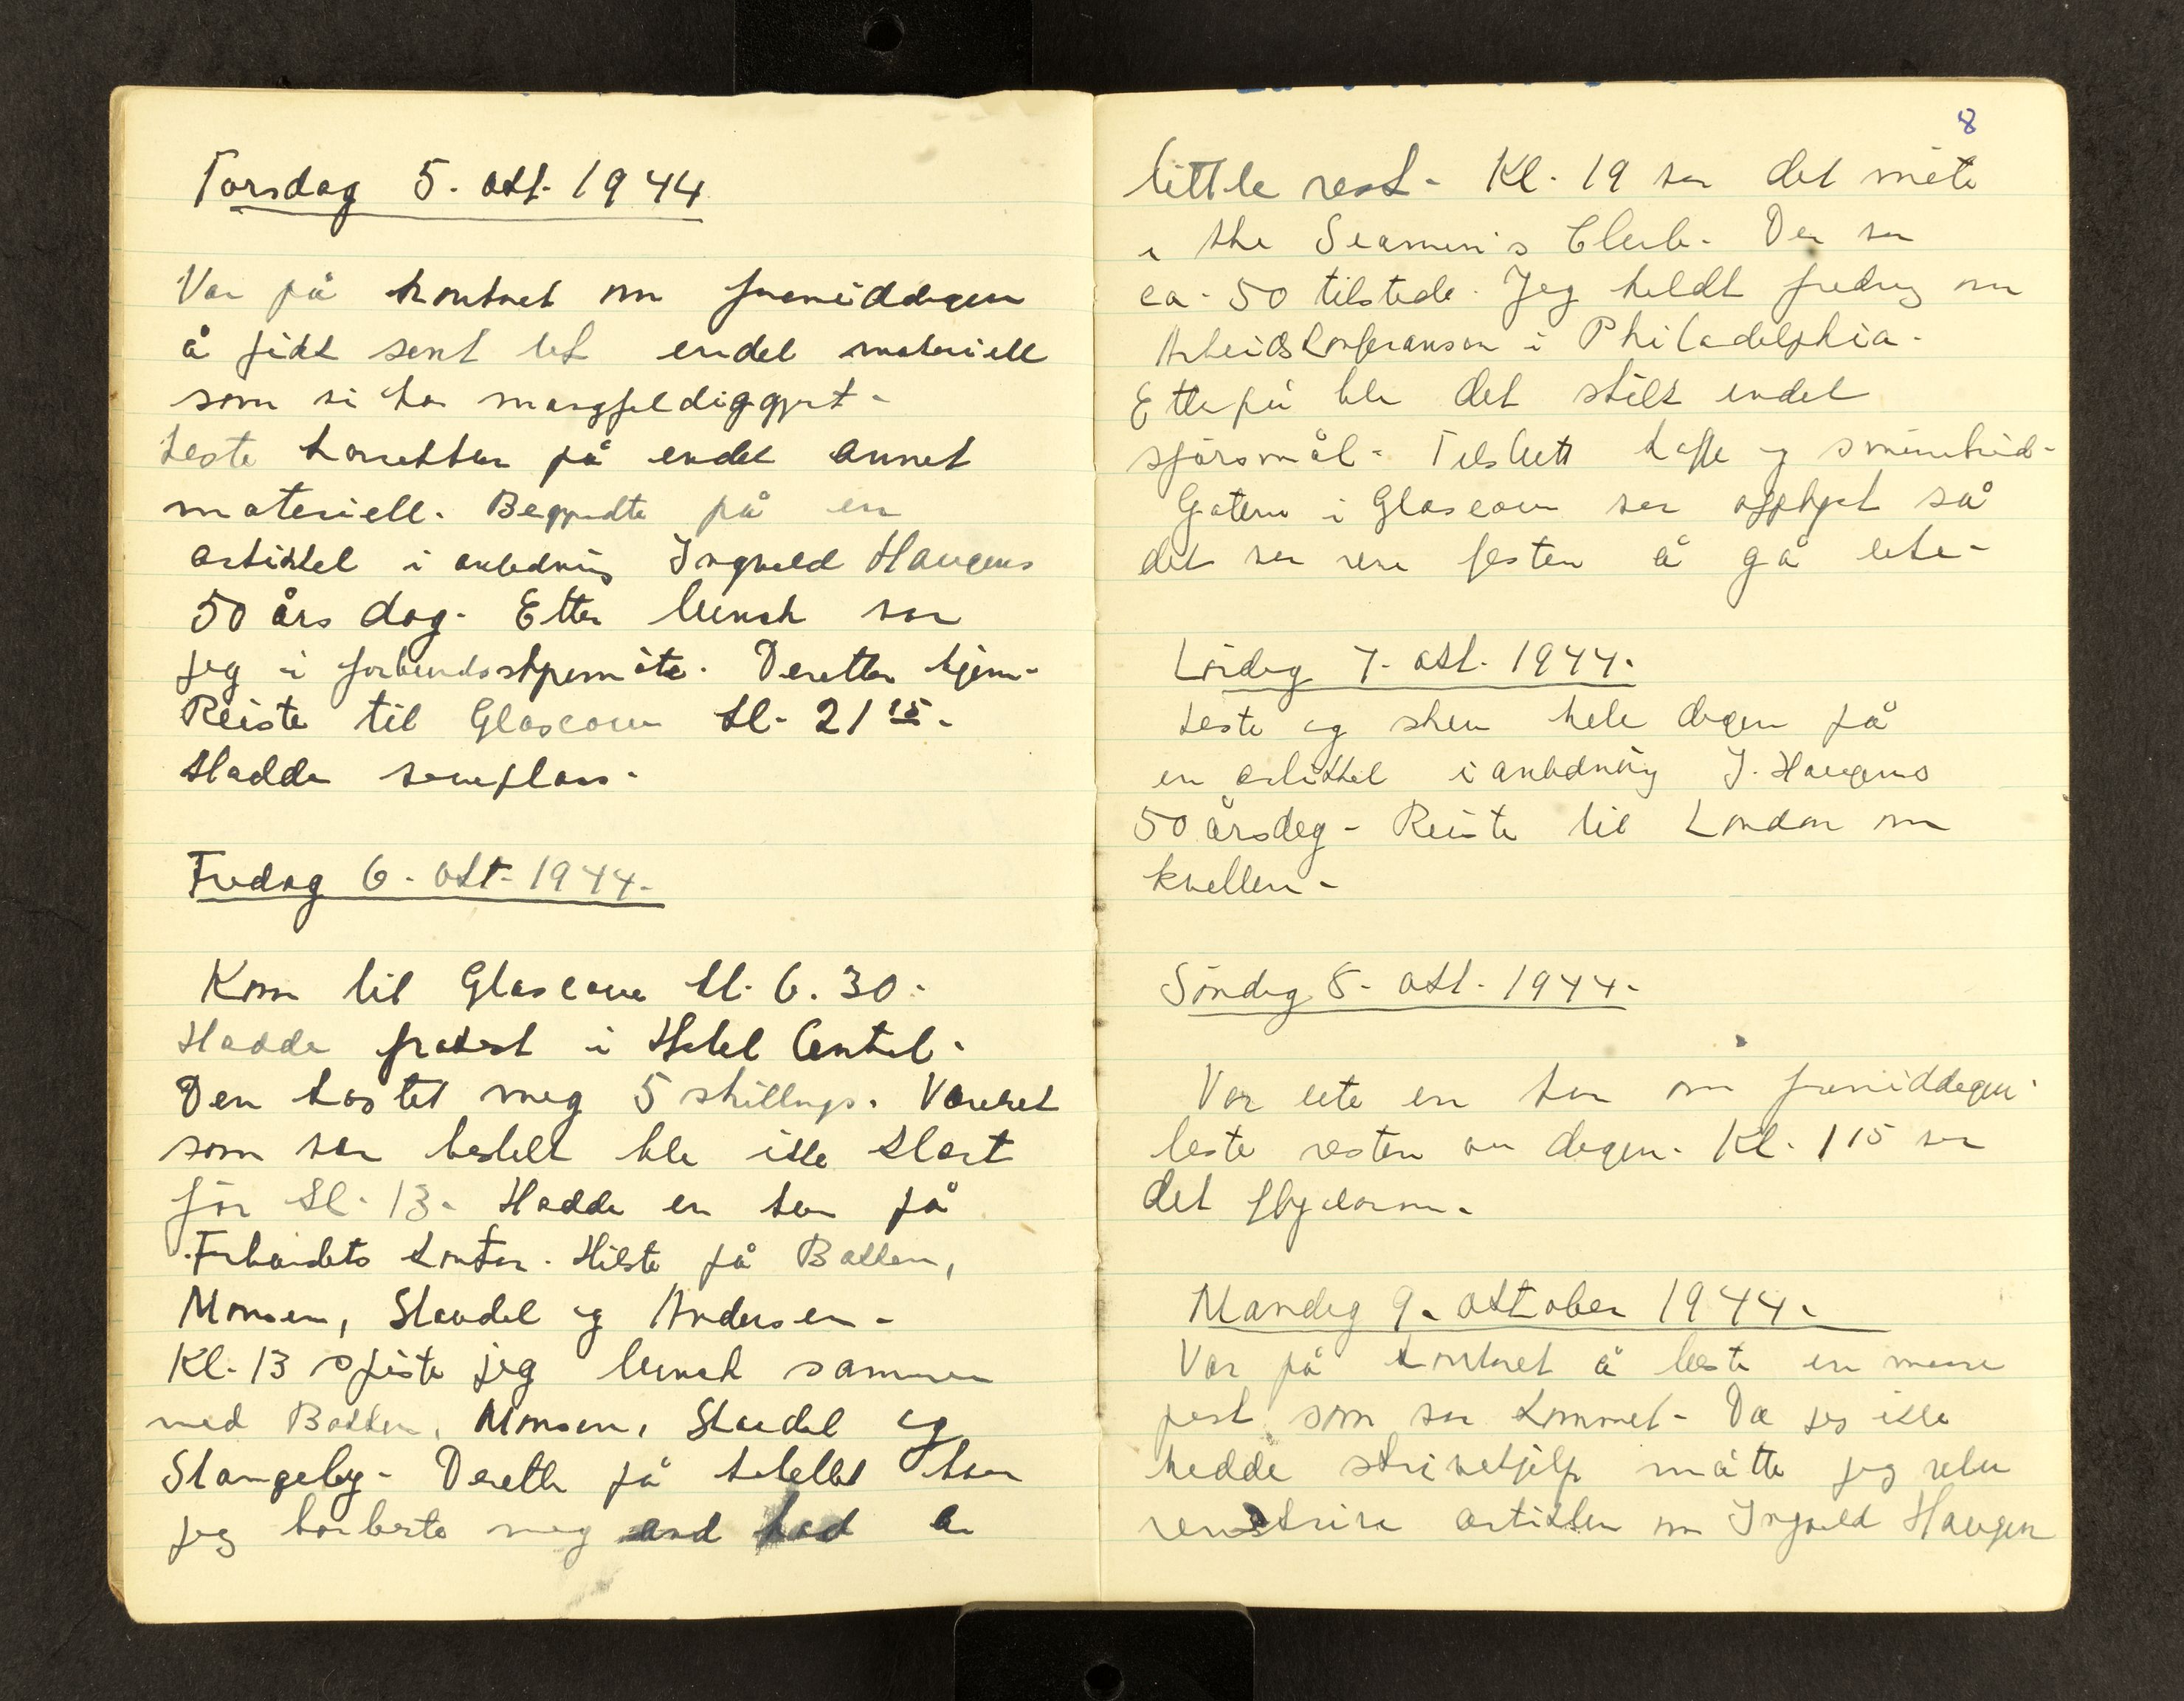 Torsdag 5. okt. 1944
Var på kontoret om formiddagen
å fikk sent ut endel materiell
som vi har mangfoldiggjort.
Leste korrektur på endel annet
materiell. Begyndte på en
artikkel i anledning Ingvald Haugens
50 års dag. Etter lunch var
jeg i forbundsstyremöte. Deretter hjem.
Reiste til Glascow kl. 21 15.
Hadde soveplass.
Fredag 6. okt. 1944.
Kom til Glascow kl. 6.30.
Hadde frokost i Hotel Central.
Den kostet meg 5 shillings. Værelset
som var bestelt ble ikke klart
för kl. 13. Hadde en tur på
Forbundets kontor. Hilste på Bakken,
Monsen, Skaudal og Andersen.
Kl. 13 spiste jeg lunch sammen
med Bakken, Monsen, Skaudal og
Slangeby. Deretter på hotellet hvor
jeg barberte meg and had a
8
little rest. Kl. 19 var det möte
i the Seamen's Club. Der var
ca. 50 tilstede. Jeg holdt foredrag om
Arbeidskonferansen i Philadelphia.
Etterpå ble det stilt endel
spörsmål. Tilslutt kaffe og smörebröd.
Gatene i Glascow var opplyst så
det var rene festen å gå ute.
Lördag 7. okt. 1944.
Leste og skrev hele dagen på
en artikkel i anledning I. Haugens
50 årsdag. Reiste til London om
kvellen.
Söndag 8. okt. 1944.
Var ute en tur om formiddagen.
leste resten av dagen. Kl. 1 15 var
det flyalarm.
Mandag 9. oktober 1944.
Var på kontoret å leste en masse
post som var kommet. Da jeg ikke
hadde skrivehjelp måtte jeg selv
renskrive artiklen om Ingvald Haugen